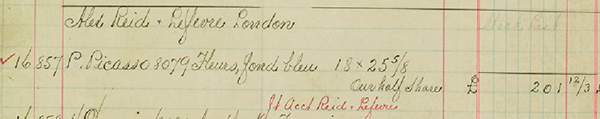 Alex Reid & Lefevre London
16857 P. Picasso 8079 Fleurs, fond bleu 18 x 25 5/8
Our half Share £ 201 12/3
Jt Acct Reid & Lefevre